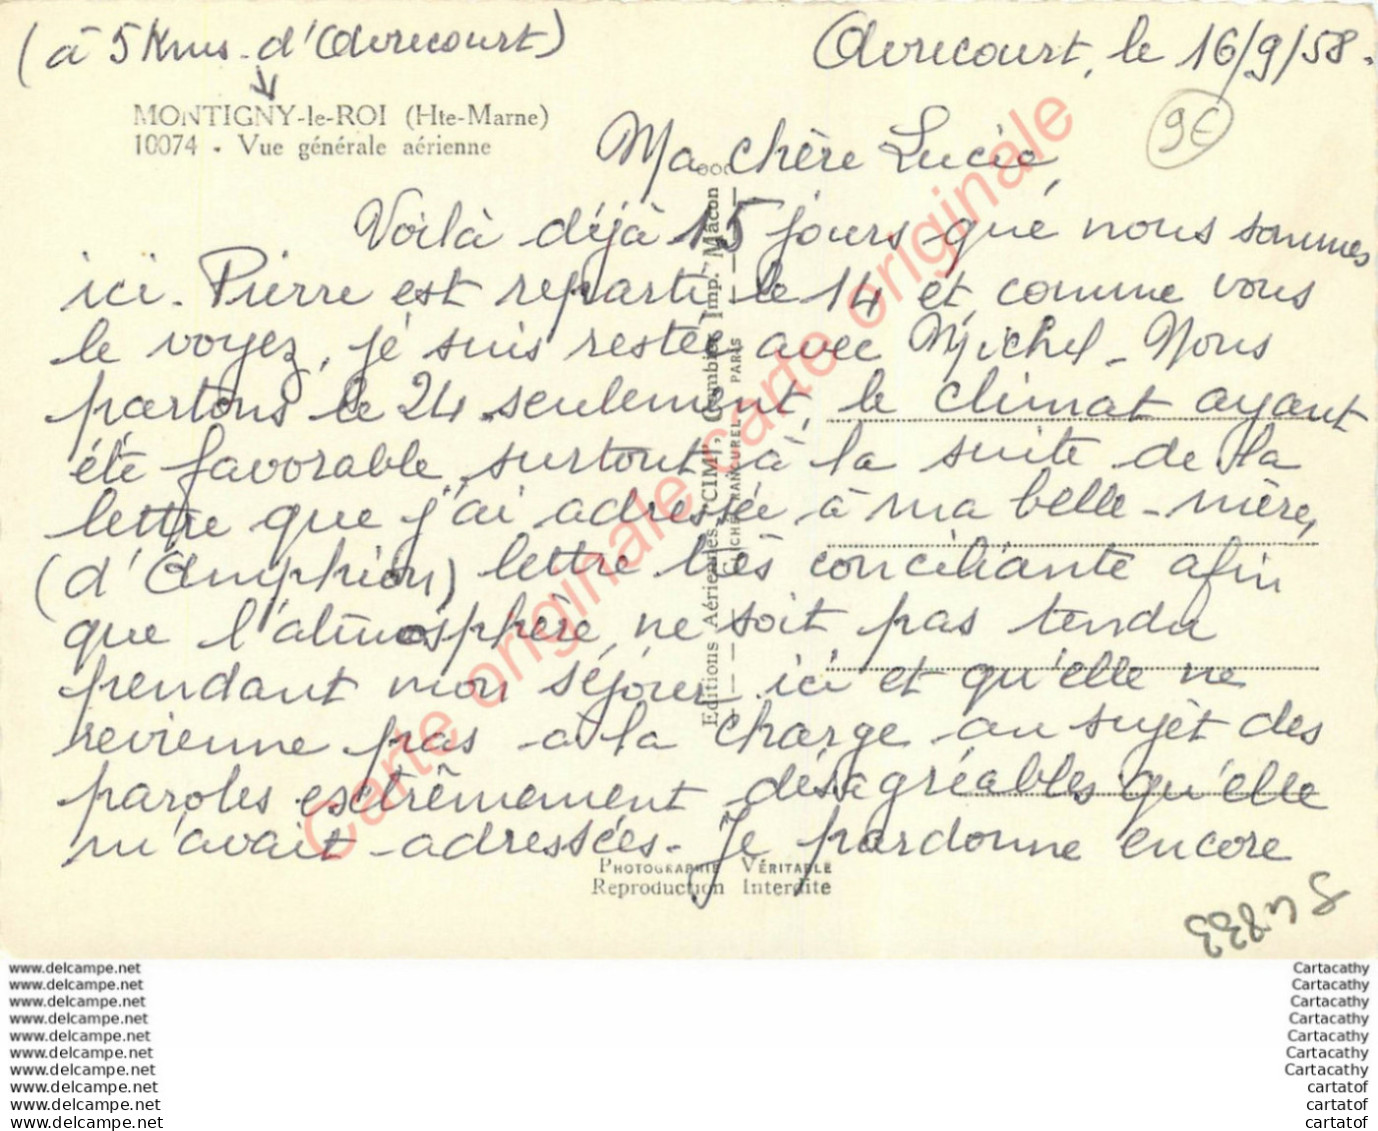 (à 5 Kms d'Avrecourt)
Avrecourt, le 16/9/58.
MONTIGNY-le-ROI (Hte-Marne)
10074 - Vue générale aérienne
9€
Ma chère Lucie,
Voilà déjà 15 jours que nous sommes
ici. Pierre est reparti le 14 et comme vous
le voyez, je suis restée avec Michel - Nous
partons le 24 seulement, le climat ayant
été favorable surtout à la suite de la
lettre que j'ai adressée à ma belle-mère,
(d'Amphion) lettre très conciliante afin
que l'atmosphère ne soit pas tendu
pendant mon séjour ici et qu'elle ne
revienne pas à la charge au sujet des
paroles extrêmement désagréables qu'elle
m'avait adressées - Je pardonne encore
Editions Aériennes "CIM", Combier Imp. Mâcon
PARIS
PHOTOGRAPHIE VÉRITABLE
Reproduction Interdite
Carte originale carte originale
www.delcampe.net
www.delcampe.net
www.delcampe.net
www.delcampe.net
www.delcampe.net
www.delcampe.net
www.delcampe.net
www.delcampe.net
www.delcampe.net
www.delcampe.net
Cartacathy
Cartacathy
Cartacathy
Cartacathy
Cartacathy
Cartacathy
Cartacathy
cartatof
cartatof
cartatof